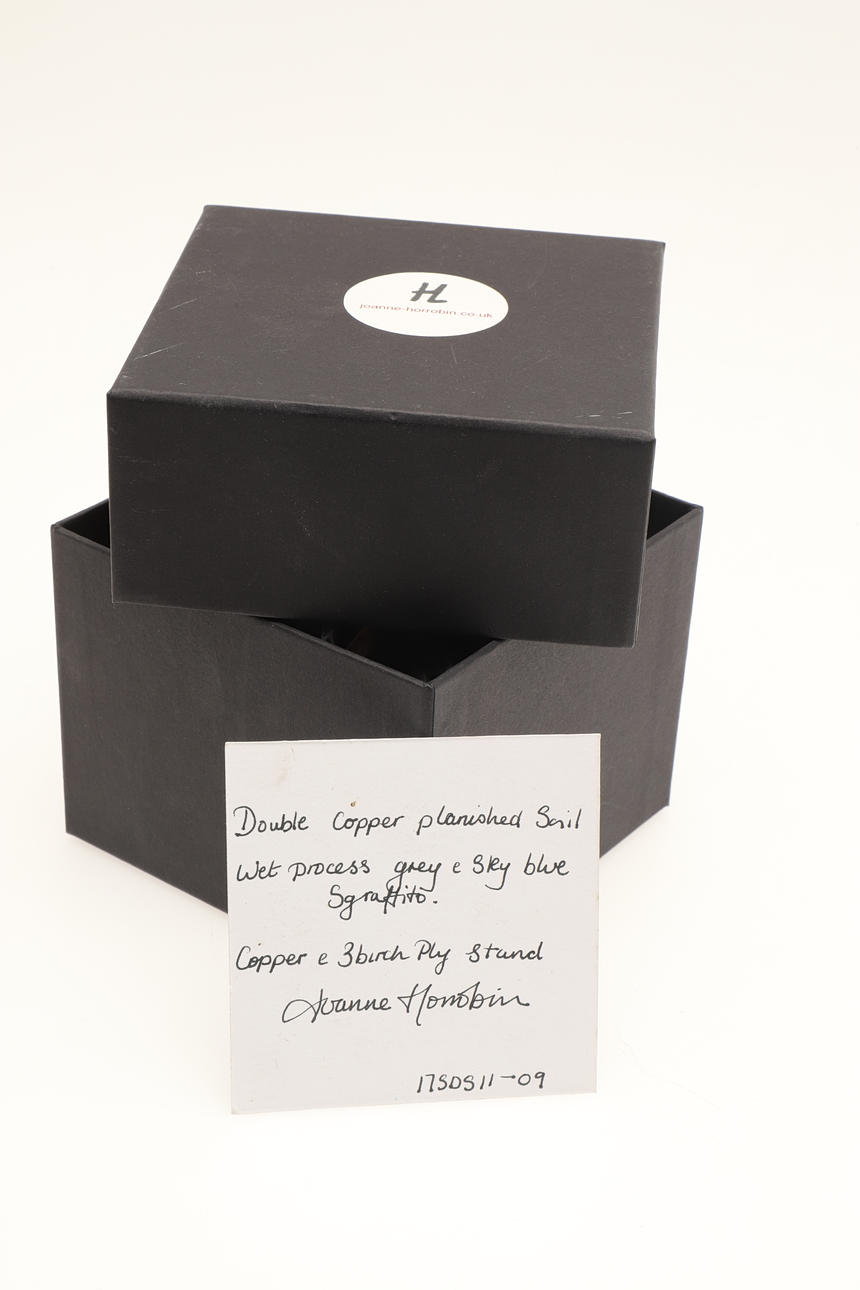 H
joanne-horrobin.co.uk
Double Copper planished Sail
Wet process grey e Sky blue
Sgraffito.
Copper e 3birch Ply Stand
Joanne Horrobin
17SDS11-09